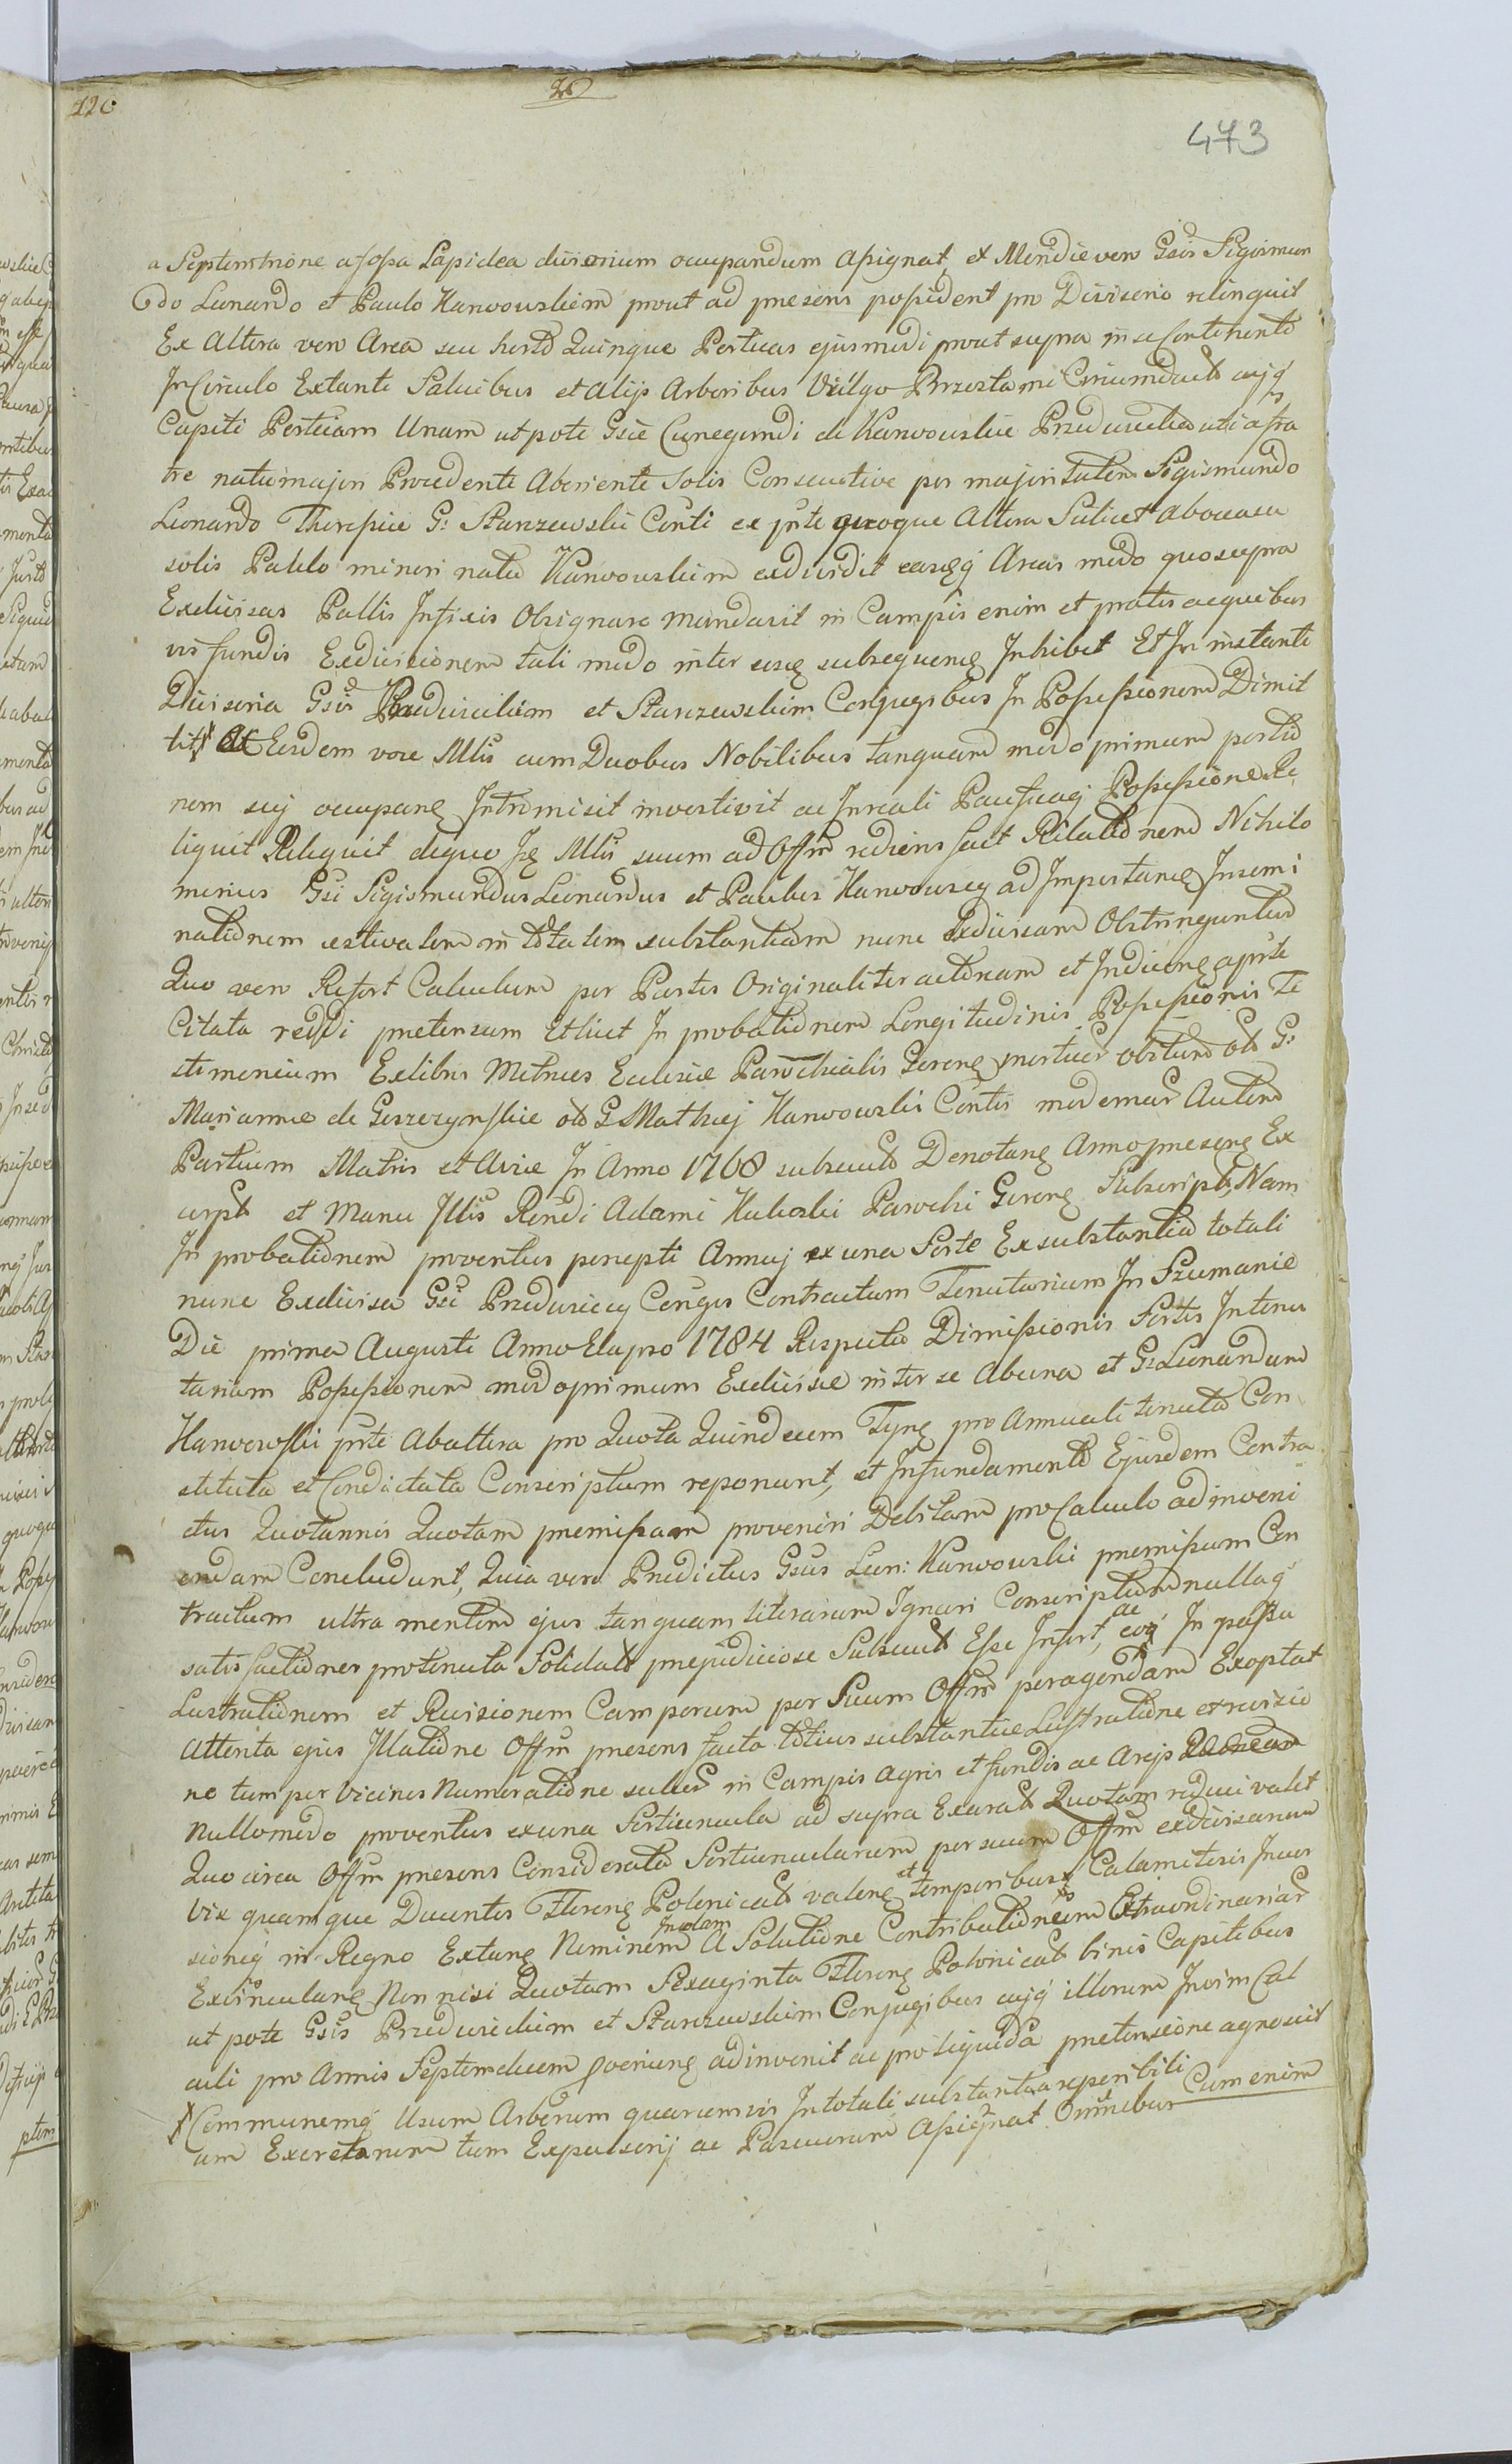 120
26
473
a Septemtrione a fossa Lapidea divisorium occupandum assignat, ex Meridie vero Gsis Sigismun
do Leonardo et Paulo Karwowskiem prout ad presens possident pro Divisorio relinquit
Ex Altera vero Area seu horto Quinque Perticas ejusmodi prout supra in se Continente
In Circulo Extanti Salicibus et alijs Arboribus Vulgo Brzostami Circumdat cujq
Capiti Perticam Unam utpote Gsæ Cunegundi de Karwowskie Przedurecka uti a fra
tre natu majori Procedente Aboriente Solis Consecutive per majoritatem Sigismundo
Leonardo Theresiæ G: Stanzewskii Conti ex pte quoque Altera Scilicet abocaca
solis Pablo minori natu Karwowskim exdividit easqz Areas modo quo supra
Exdivisas Pallis Infixis Obsignare mandavit in Campis enim et pratis ac quibus
vis fundis Exdivisionem tali modo inter eosq subsequenq Inhibet Et In instanti
Divisoria Gsis Przedurickim et Stanzewskim Conjugibus In Possessionem Dimit
tit Eosdem vero Mlis cum Duobus Nobilibus tanquam modo primum portio
nem suj occupanq Intromisit investivit ac In reali Pacificaq Possessione Re
liquit Reliquit deque Iq Mlis suum ad Offm rediens fecit Relationem Nihilo
minus Gsi Sigismundus Leonardus et Paulus Karwowscy ad Importanq Insemi
nationem estivalem in totalem substantiam nunc Exdivisam Obstringuntur
Quo vero Refert Calculum per Partes Originaliter actoream et Inducenq a pte
Citata reddi pretensum Et licet In probationem Longitudinis Possessionis Te
stimonium Exlibris Metrices Ecclesiæ Parochialis Gerenq mortuor obitum ol G:
Mariannæ de Goszczynskie ol G Mathiej Karwowski Contis modernar Autem
Partium Matris et Aviæ In Anno 1768 subsecut Denotanq Anno presenq Ex
cerpt et Manu Illis Rendi Adami Kuleski Parochi Gerenq Subscript, Nam
In probationem proventus percepti Annuj ex una Sorte Ex substantia totali
nunc Exdivisa Gsi Przeduriccy Conges Contractum Tenutarium In Szumanie
Die prima Augusti Anno Elapso 1784 Respectu Dimissionis Sortis In tenu
tariam Possessionem modo primum Exdivisæ inter se Abuna et G: Leonardum
Karwowski pte Abaltera pro Quota Quindecem Tynq pro Annuali tenuta Con
stituta et Condictata Conscriptum reponunt, et In fundamento Ejusdem Contra
ctus Quotannis Quotam premissam proveniri Debitam pro Calculo adinveni
endam Concludunt, Quia vero Predictus Gsus Leon: Karwowski premissum Con
tractum ultra mentem ejus tanquam literarum Ignari Conscriptum nullaq
satisfactiones pro tenuta Solidat prejudiciose Subsecut Esse Infert, ac eoq In passu
Lustrationem et Revisionem Camporum per Suum Offm peragendam Exoptat
Attenta ejus Illatione Offm presens facta totius substantiæ Lustratione et revisio
ne tum per vicinos Numeratione sulcor in Campis agris et fundis ac Areis
Nullomodo proventus ex una Sortiuncula ad supra Exarat Quotam reduci valet
Quo circa Offm presens Considerata Sortiuncularum per suum Offm exdivisarum
vix quamque Ducentis Florenq Polonicat valenq et temporibus Calamitosis Incur
sioneq in Regno Extanq Neminem Incolam A Solutione Contributionum Extraordinariar
Exvinculanq Non nisi Quotam Sexaginta Florenq Polonicat binis Capitibus
ut pote Gsis Przedurickim et Stanzewskim Conjugibus cujq illorum In vim Cal
culi pro Annis Septemdecem proveniunq adinvenit ac pro liquida pretensione agnoscit
Communemq Usum Arborum quarumvis In totali substantia reperibili
um Exoretarum tum Expulsorij ac Pascuorum Assignat Omnibus Cum enim